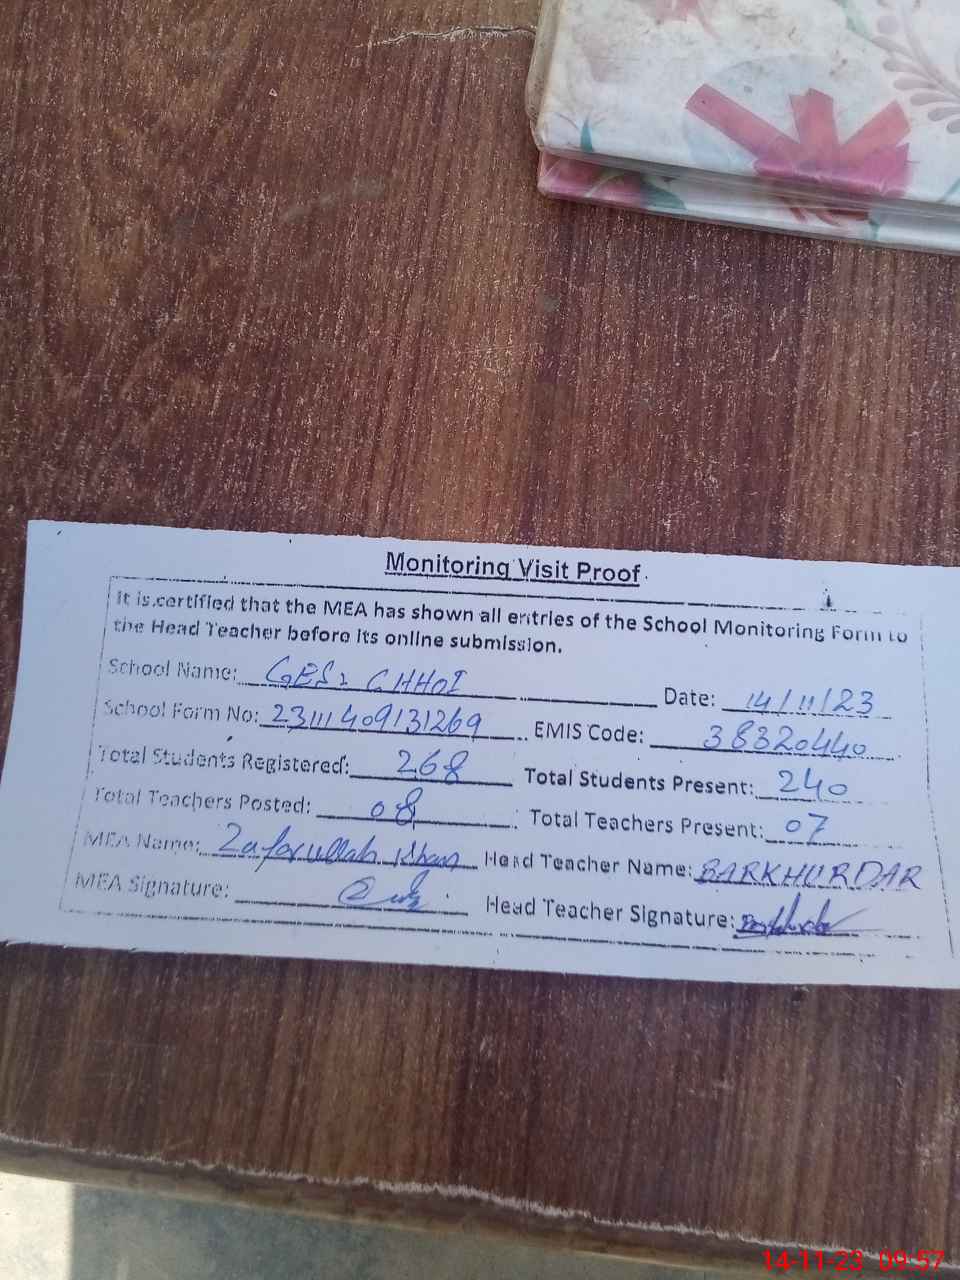 Monitoring Visit Proof
It is certified that the MEA has shown all entries of the School Monitoring Form to
the Head Teacher before its online submission.
School Name: GES CHHOI Date: 14/11/23
School Form No: 231111409131269 EMIS Code: 38320440
Total Students Registered: 268 Total Students Present: 240
Total Teachers Posted: 08 Total Teachers Present: 07
MEA Name: Zafarullah Khan Head Teacher Name: BARKHURDAR
MEA Signature: Head Teacher Signature:
14-11-23 09:57